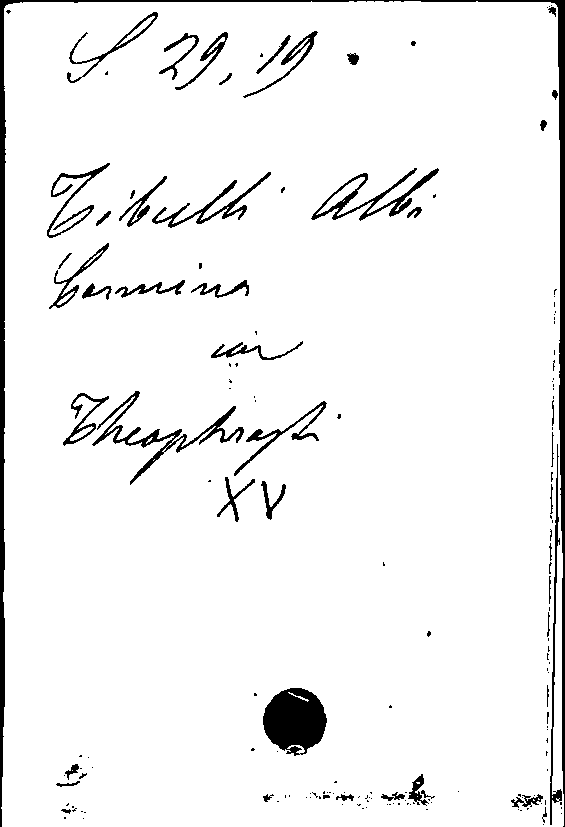 S. 29, 19
Tibulli Albi
Carmina
Theophrasti
XV